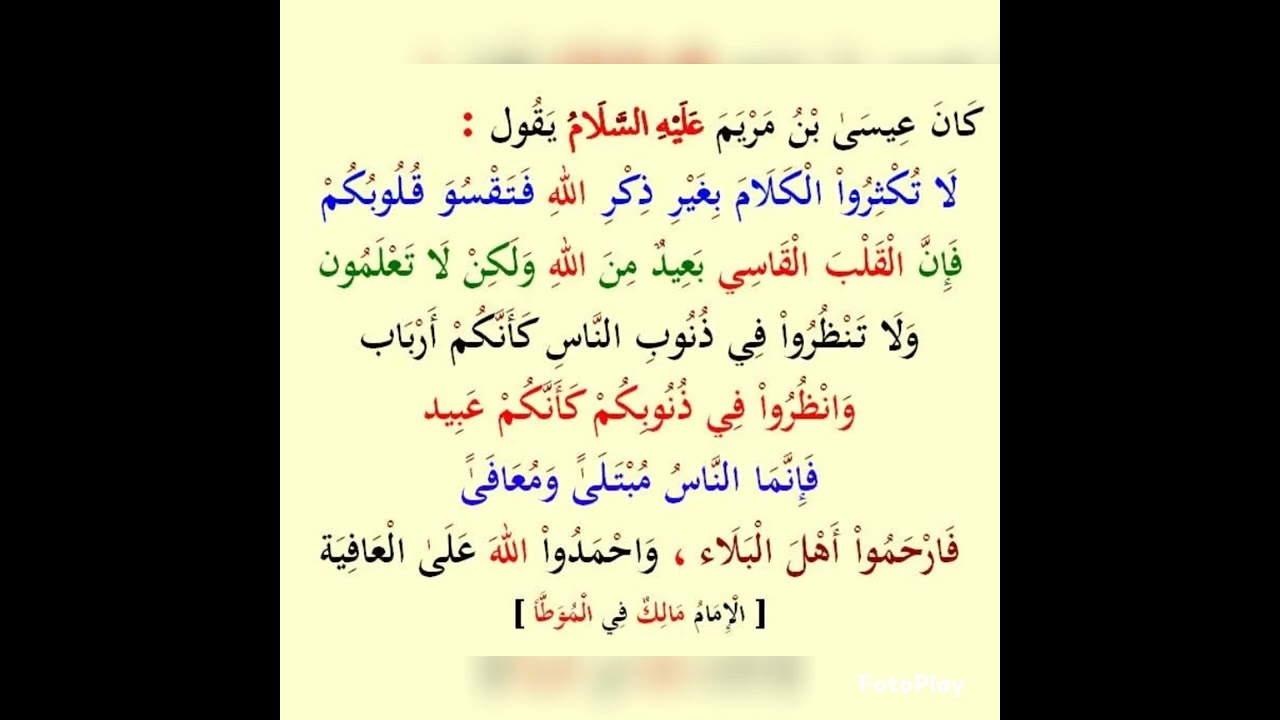 كَانَ عِيسَىٰ بْنُ مَرْيَمَ عَلَيْهِ السَّلَامُ يَقُول :
لَا تُكْثِرُواْ الْكَلَامَ بِغَيْرِ ذِكْرِ اللهِ فَتَقْسُوَ قُلُوبُكُمْ
فَإِنَّ الْقَلْبَ الْقَاسِي بَعِيدٌ مِنَ اللهِ وَلَكِنْ لَا تَعْلَمُون
وَلَا تَنْظُرُواْ فِي ذُنُوبِ النَّاسِ كَأَنَّكُمْ أَرْبَاب
وَانْظُرُواْ فِي ذُنُوبِكُمْ كَأَنَّكُمْ عَبِيد
فَإِنَّمَا النَّاسُ مُبْتَلَىً وَمُعَافَىً
فَارْحَمُواْ أَهْلَ الْبَلَاء ، وَاحْمَدُواْ اللهَ عَلَىٰ الْعَافِيَة
[ الْإِمَامُ مَالِكٌ فِي الْمُوَطَّأ ]
FotoPlay